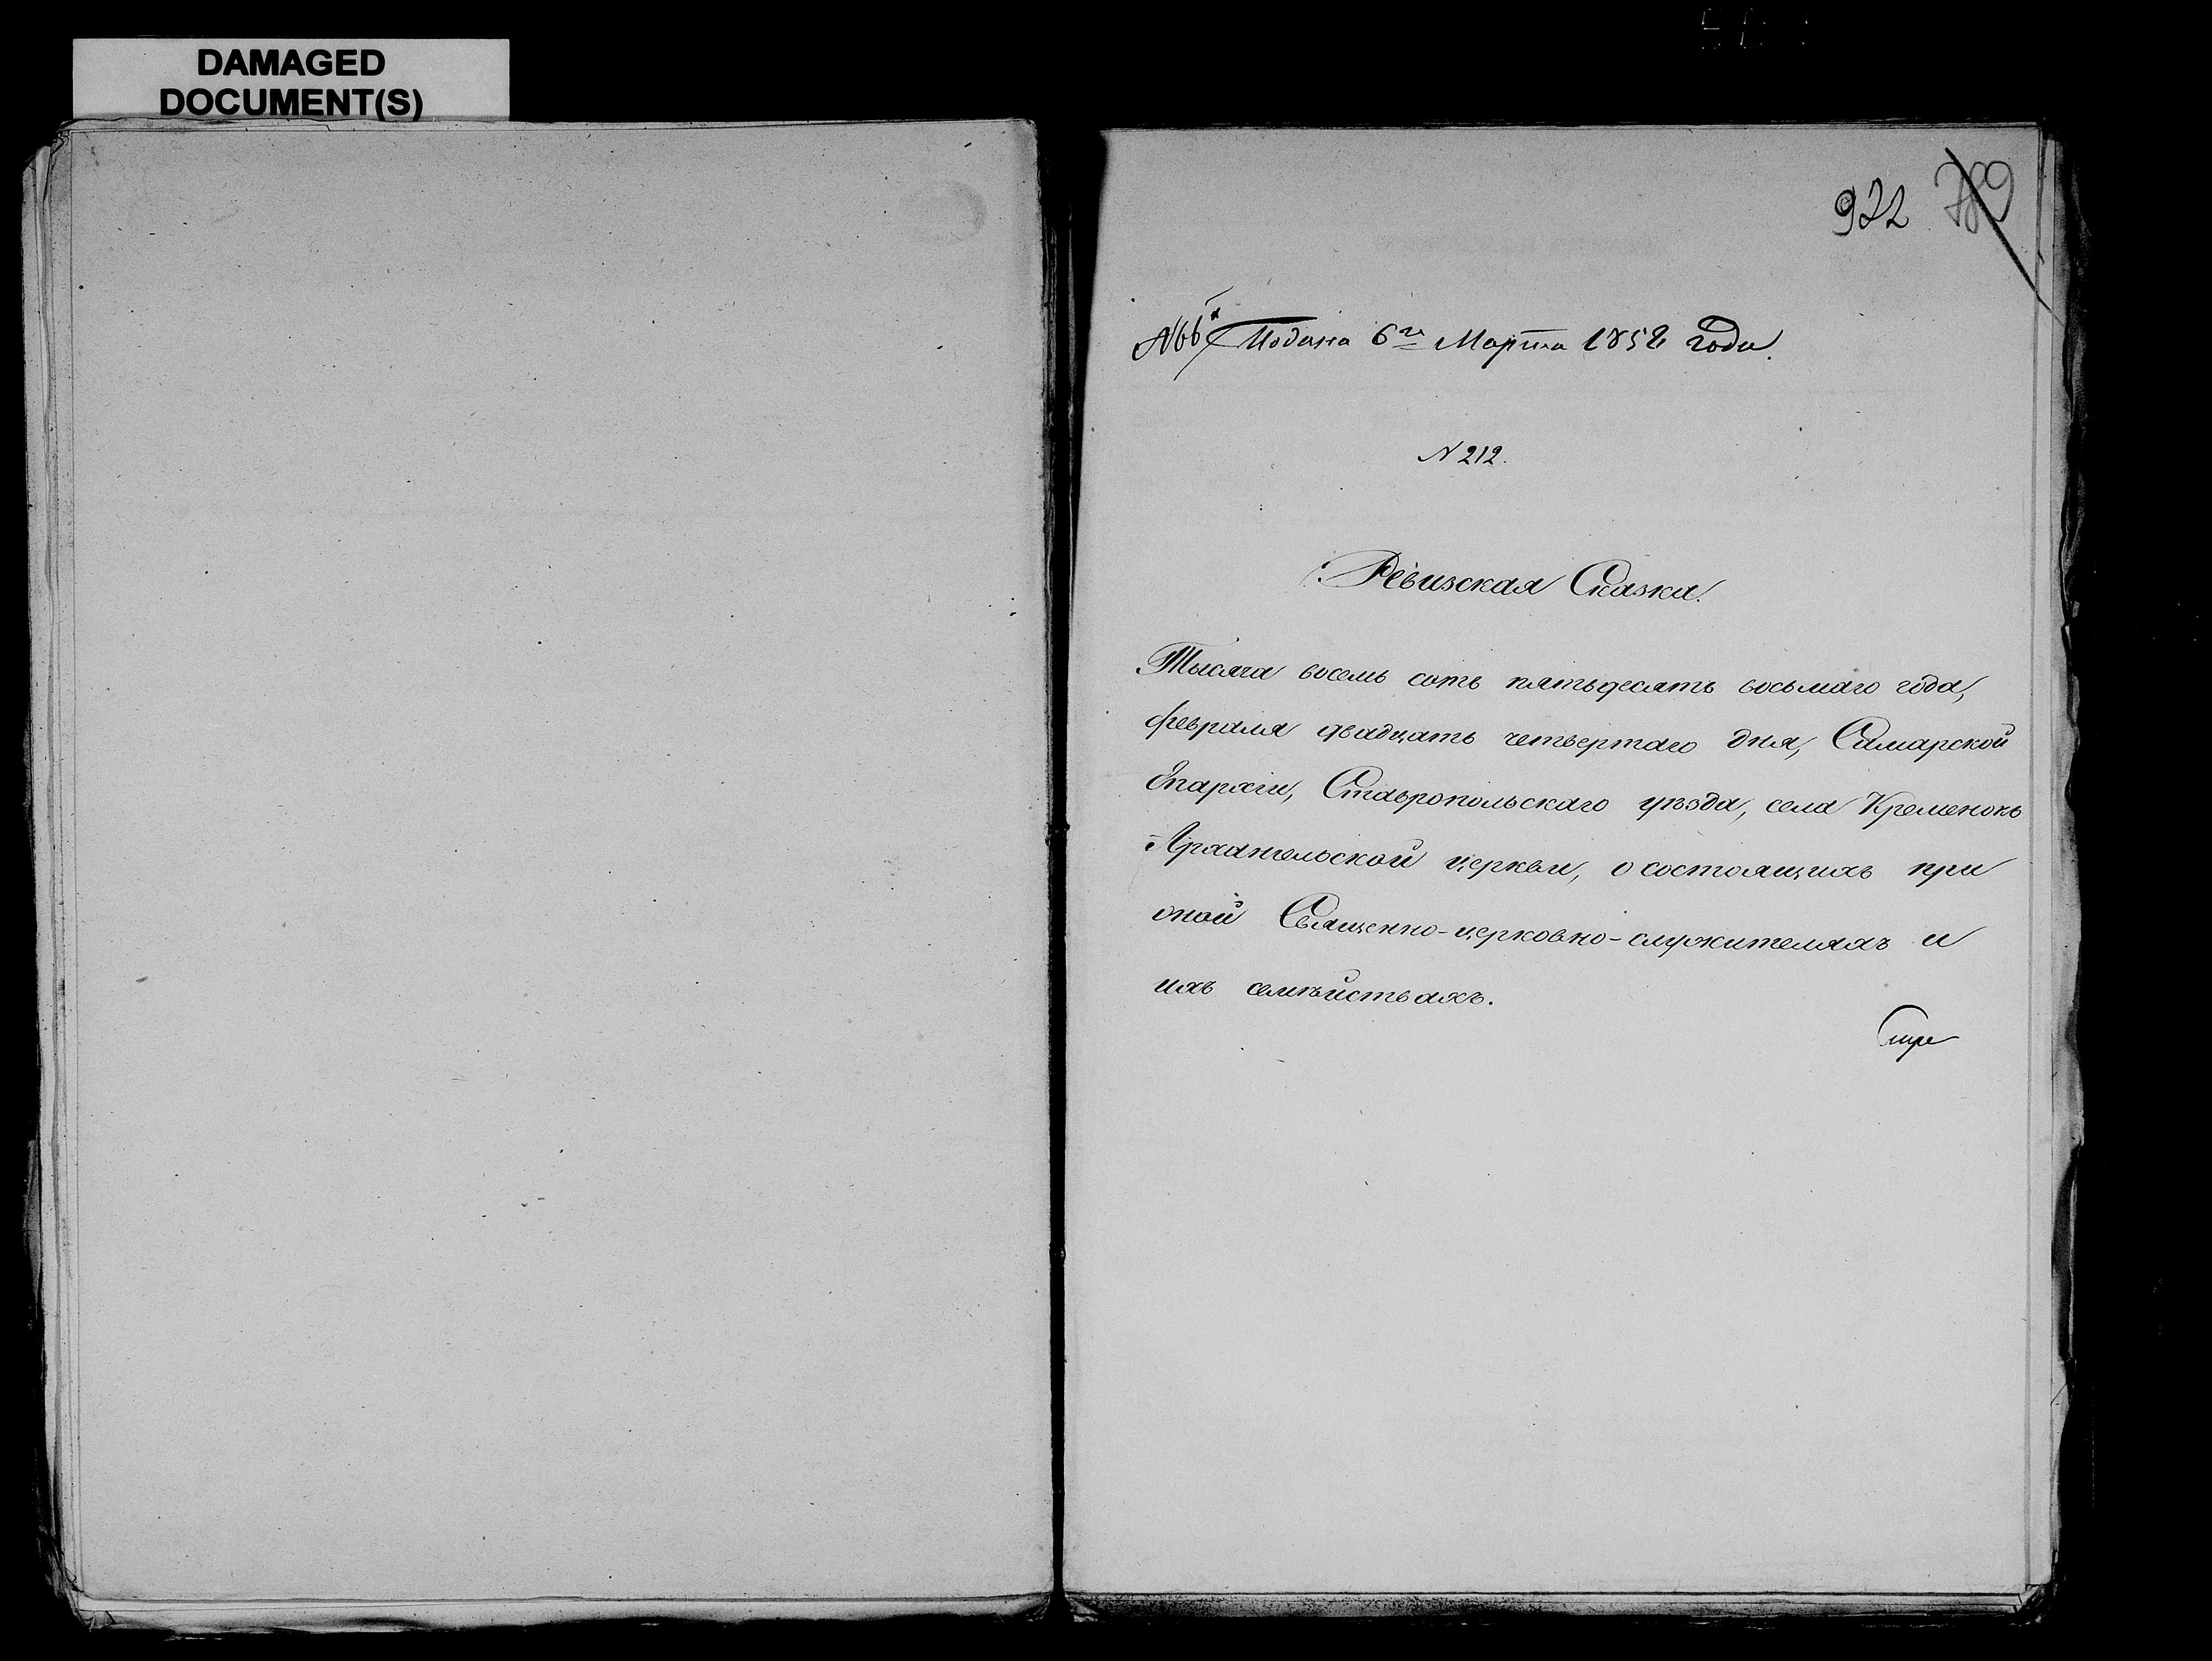 DAMAGED
DOCUMENT(S)
922 789
Подана 6го Марта 1858 года.
N 212.
Ревизская Сказка.
Тысяча восемь сотъ пятьдесятъ восьмаго года,
февраля двадцать четвертаго дня, Самарской
Епархіи, Ставропольскаго уѣзда, села Кременокъ
Архангельской церкви, о состоящихъ при
оной Священно-церковно-служителяхъ и
ихъ семѣйствахъ.